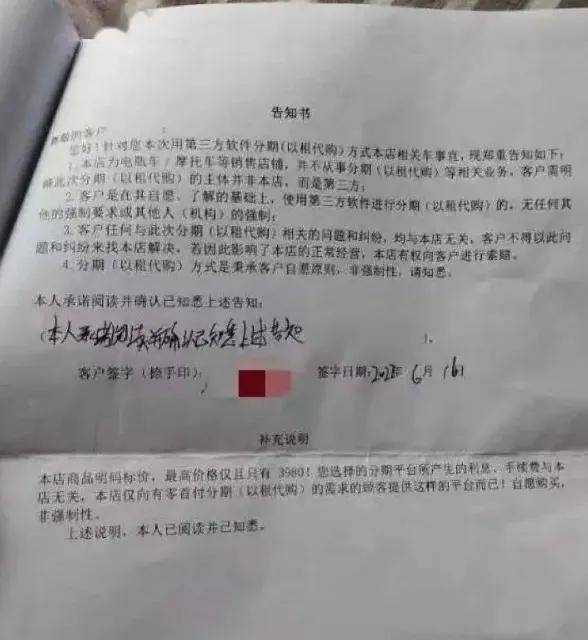 告知书
尊敬的客户：
您好！针对您本次用第三方软件分期（以租代购）方式本店相关车事宜，现郑重告知如下：
1.本店为电瓶车／摩托车等销售店铺，并不从事分期（以租代购）等相关业务，客户需明
确此次分期（以租代购）的主体并非本店，而是第三方；
2.客户是在其自愿、了解的基础上，使用第三方软件进行分期（以租代购）的，无任何其
他的强制要求或其他人（机构）的强制；
3.客户任何与此次分期（以租代购）相关的问题和纠纷，均与本店无关，客户不得以此问
题和纠纷来找本店解决，若因此影响了本店的正常经营，本店有权向客户进行索赔。
4.分期（以租代购）方式是秉承客户自愿原则，非强制性，请知悉。
本人承诺阅读并确认已知悉上述告知：
（本人承诺阅读并确认已知悉上述告知 ）。
客户签字（捺手印）： 签字日期：2023年 6月 16日
补充说明
本店商品明码标价，最高价格仅且只有 3980！您选择的分期平台所产生的利息、手续费与本
店无关，本店仅向有零首付分期（以租代购）的需求的顾客提供这样的平台而已！自愿购买，
非强制性。
上述说明，本人已阅读并已知悉。